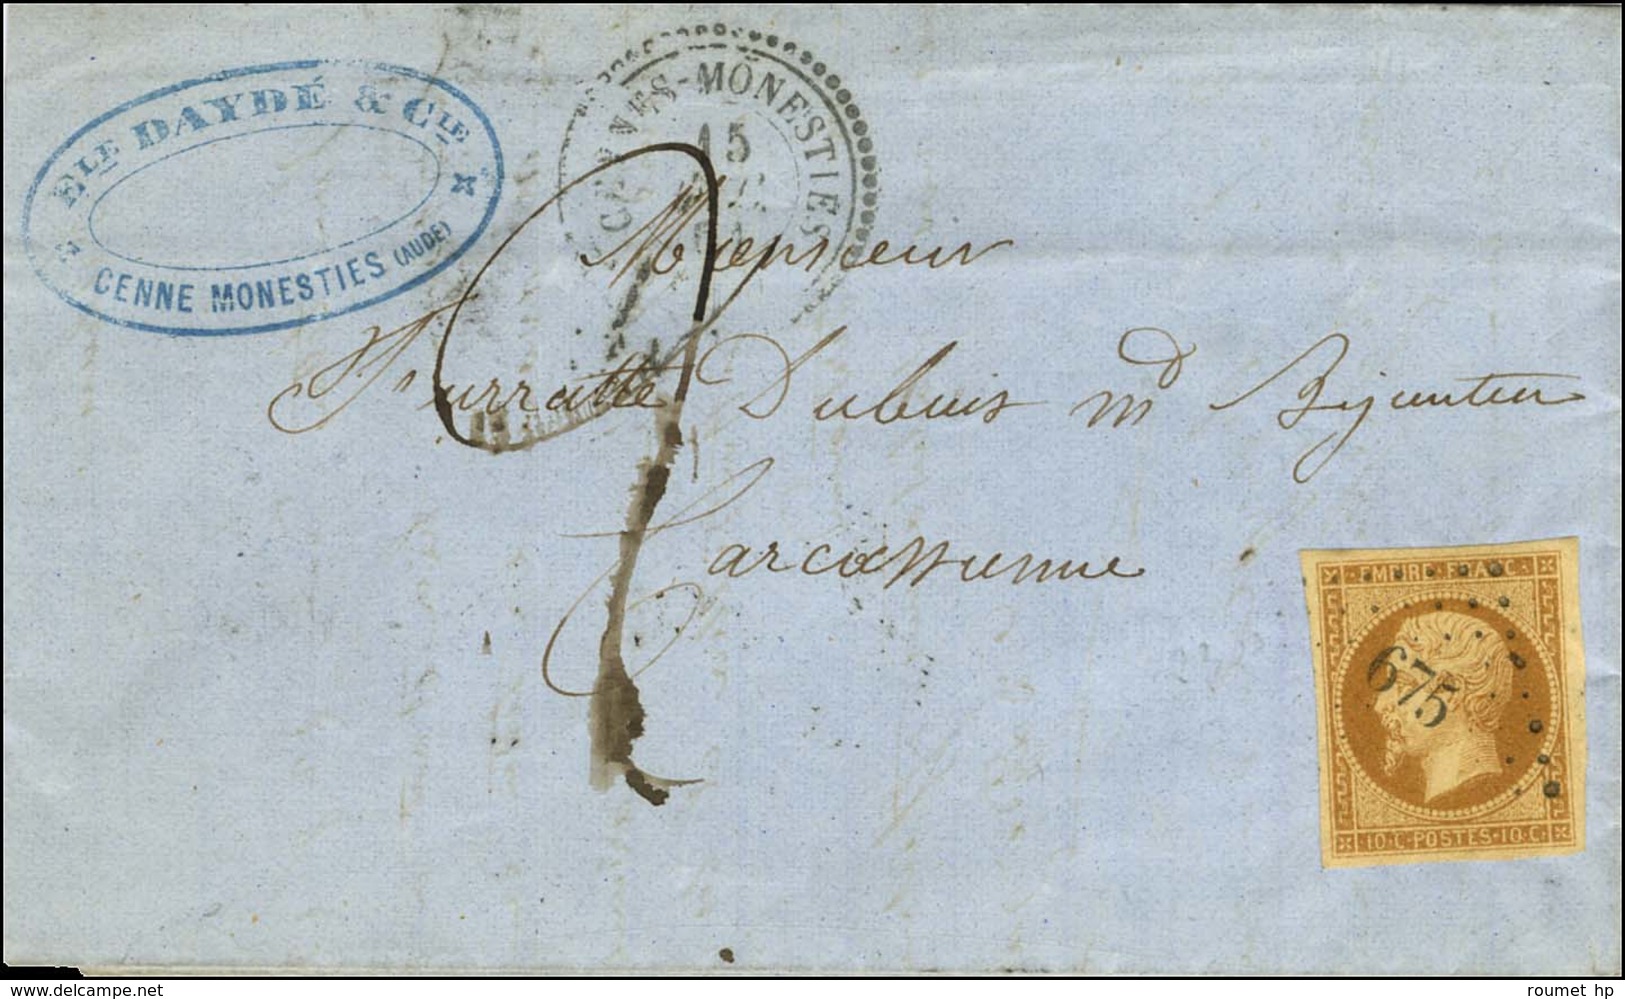 ELE DAYDÉ & CIE
CENNE MONESTIES (AUDE)
CENNES-MONESTIES
15
Monsieur
Dubuis md Bijoutier
Carcassonne
EMPIRE FRANC.
675
10.C.POSTES.10.C.
www.delcampe.net
roumet hp